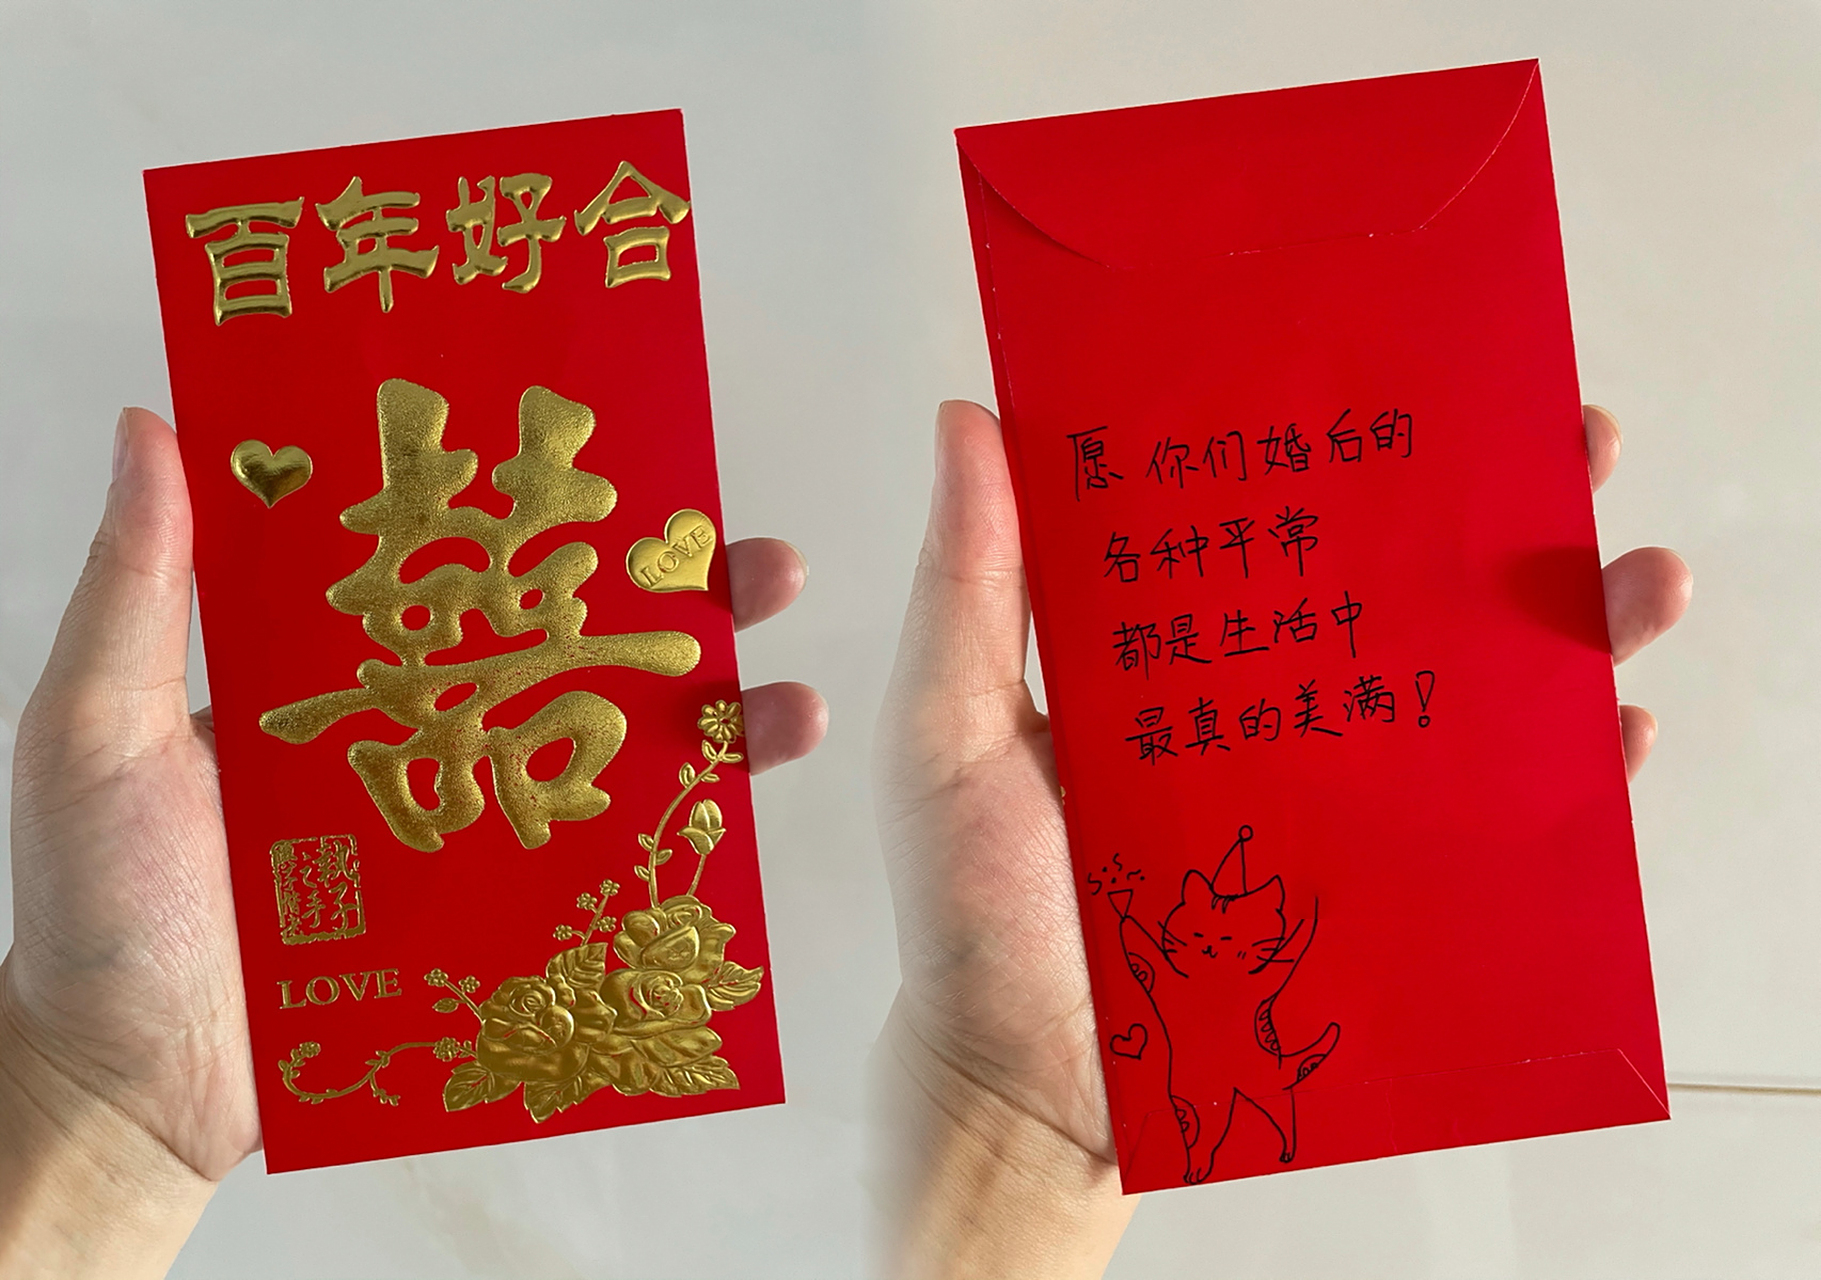 百年好合
囍
LOVE
執子
之手
LOVE
愿你们婚后的
各种平常
都是生活中
最真的美满!